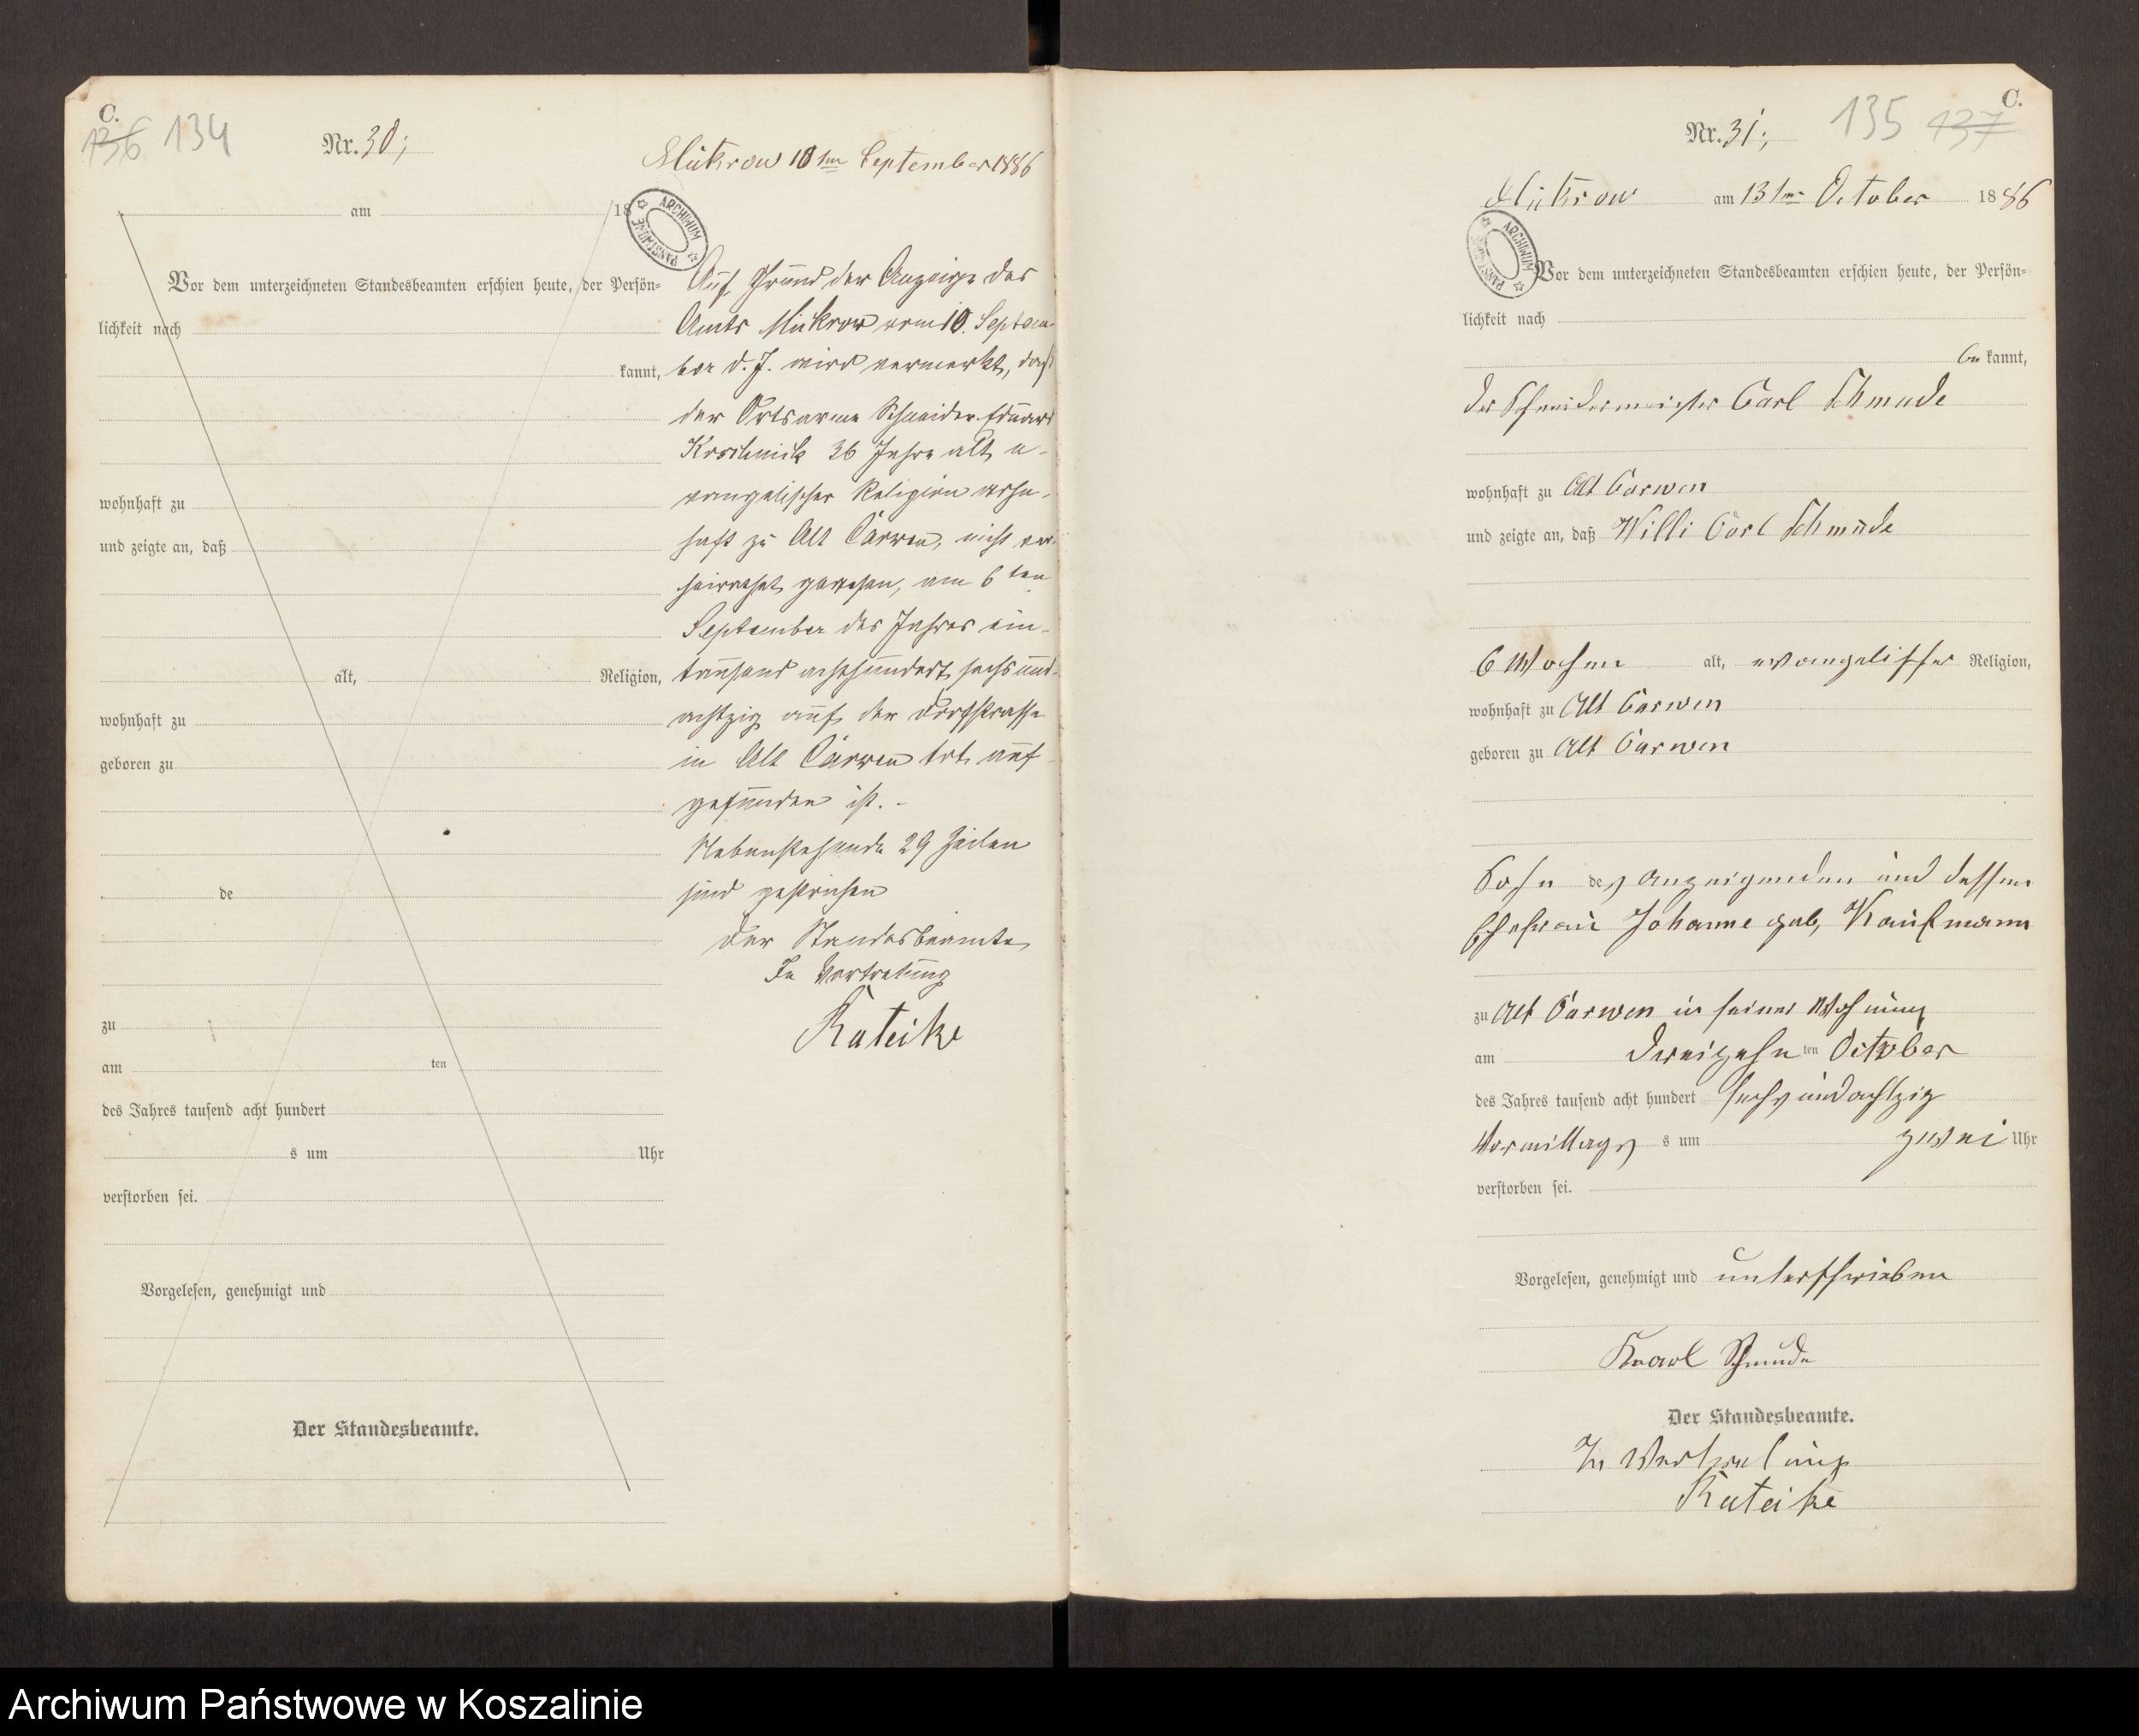 C.
136 134
Nr. 30;
Mückrow 10ten September 1886
am 18
ARCHIWUM PAŃSTWOWE
Vor dem unterzeichneten Standesbeamten erschien heute, der Persön-
lichkeit nach
kannt,
wohnhaft zu
und zeigte an, daß
alt, Religion,
wohnhaft zu
geboren zu
de
zu
am ten
des Jahres tausend acht hundert
s um Uhr
verstorben sei.
Vorgelesen, genehmigt und
Der Standesbeamte.
Auf Grund der Anzeige des
Amts Mückrow vom 10. Septem-
ber d. J. wird vermerkt, daß
der Ortsarme Schneider Eduard
36 Jahre alt, e-
vangelischer Religion wohn-
haft zu Alt Carwen, nicht ver-
heirathet gewesen, am 6ten
September des Jahres ein-
tausend achthundert sechs und
achtzig auf der Dorfstrasse
in Alt Carwen tot auf-
gefunden ist. -
Nebenstehende 29 Zeilen
sind gestrichen
Der Standesbeamte,
In Vertretung
Rateike
C.
Nr. 31; 135 137
Mückrow am 13ten October 1886
ARCHIWUM PAŃSTWOWE
Vor dem unterzeichneten Standesbeamten erschien heute, der Persön-
lichkeit nach
be kannt,
der Schneidermeister Carl Schmude
wohnhaft zu Alt Carwen
und zeigte an, daß Willi Carl Schmude
6 Wochen alt, evangelischer Religion,
wohnhaft zu Alt Carwen
geboren zu Alt Carwen
Sohn des Anzeigenden und dessen
Ehefrau Johanne geb, Kaufmann
zu Alt Carwen in seiner Wohnung
am dreizehn ten October
des Jahres tausend acht hundert sechs und achtzig
Vormittags s um zwei Uhr
verstorben sei.
Vorgelesen, genehmigt und unterschrieben
Karl Schmude
Der Standesbeamte.
In Vertretung
Rateike
Archiwum Państwowe w Koszalinie